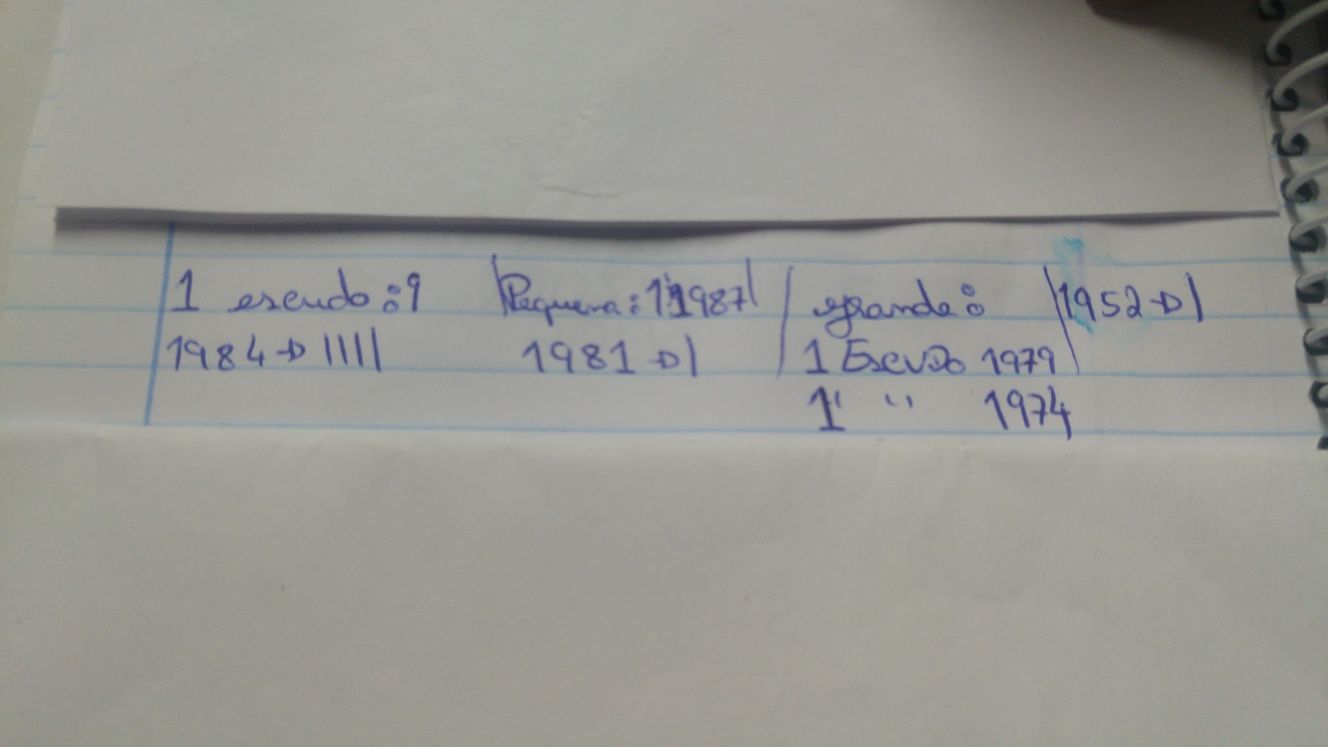 1 escudo:9 |Pequena: 1 1987| | grande: |1952→|
1984→|||| 1981→| 1 Escudo 1979
1 " 1974